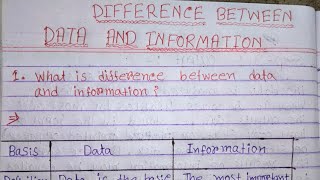 DIFFERENCE BETWEEN
DATA AND INFORMATION
1. What is difference between data
and information?
⇒
Basis Data Information
Data is the The most important